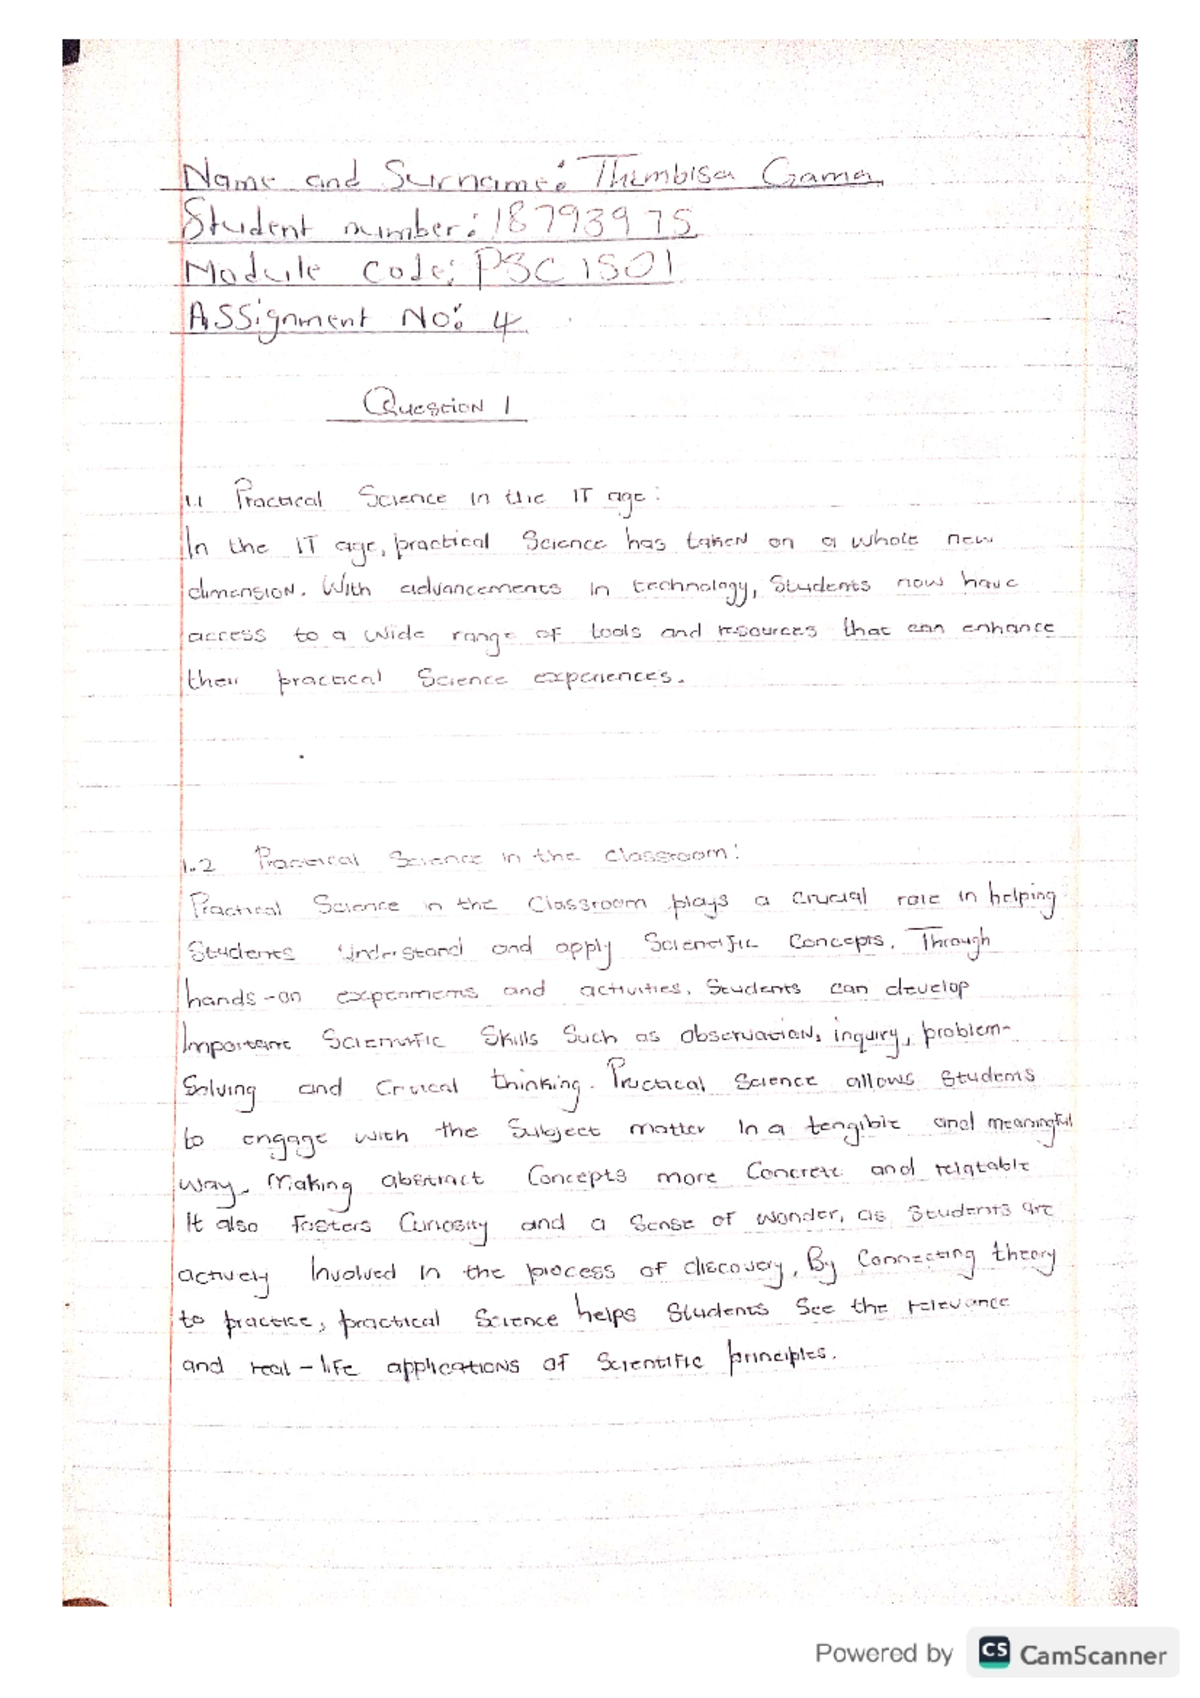 Name and Surname: Thembisa Gama
Student number: 18793975
Module code: PSC1501
Assignment No: 4
Question 1
1.1 Practical Science in the IT age:
In the IT age, practical Science has taken on a whole new
dimension. With advancements in technology, Students now have
access to a wide range of tools and resources that can enhance
their practical Science experiences.
1.2 Practical Science in the classroom:
Practical Science in the Classroom plays a crucial role in helping
Students Understand and apply Scientific Concepts. Through
hands-on experiments and activities, Students can develop
Important Scientific Skills Such as observation, inquiry, problem-
Solving and Critical thinking. Practical Science allows Students
to engage with the Subject matter In a tangible and meaningful
way, Making abstract Concepts more Concrete and relatable
It also Fosters Curiosity and a Sense of wonder, as Students are
actively Involved In the process of discovery. By Connecting theory
to practice, practical Science helps Students See the relevance
and real-life applications of Scientific principles.
Powered by CS CamScanner